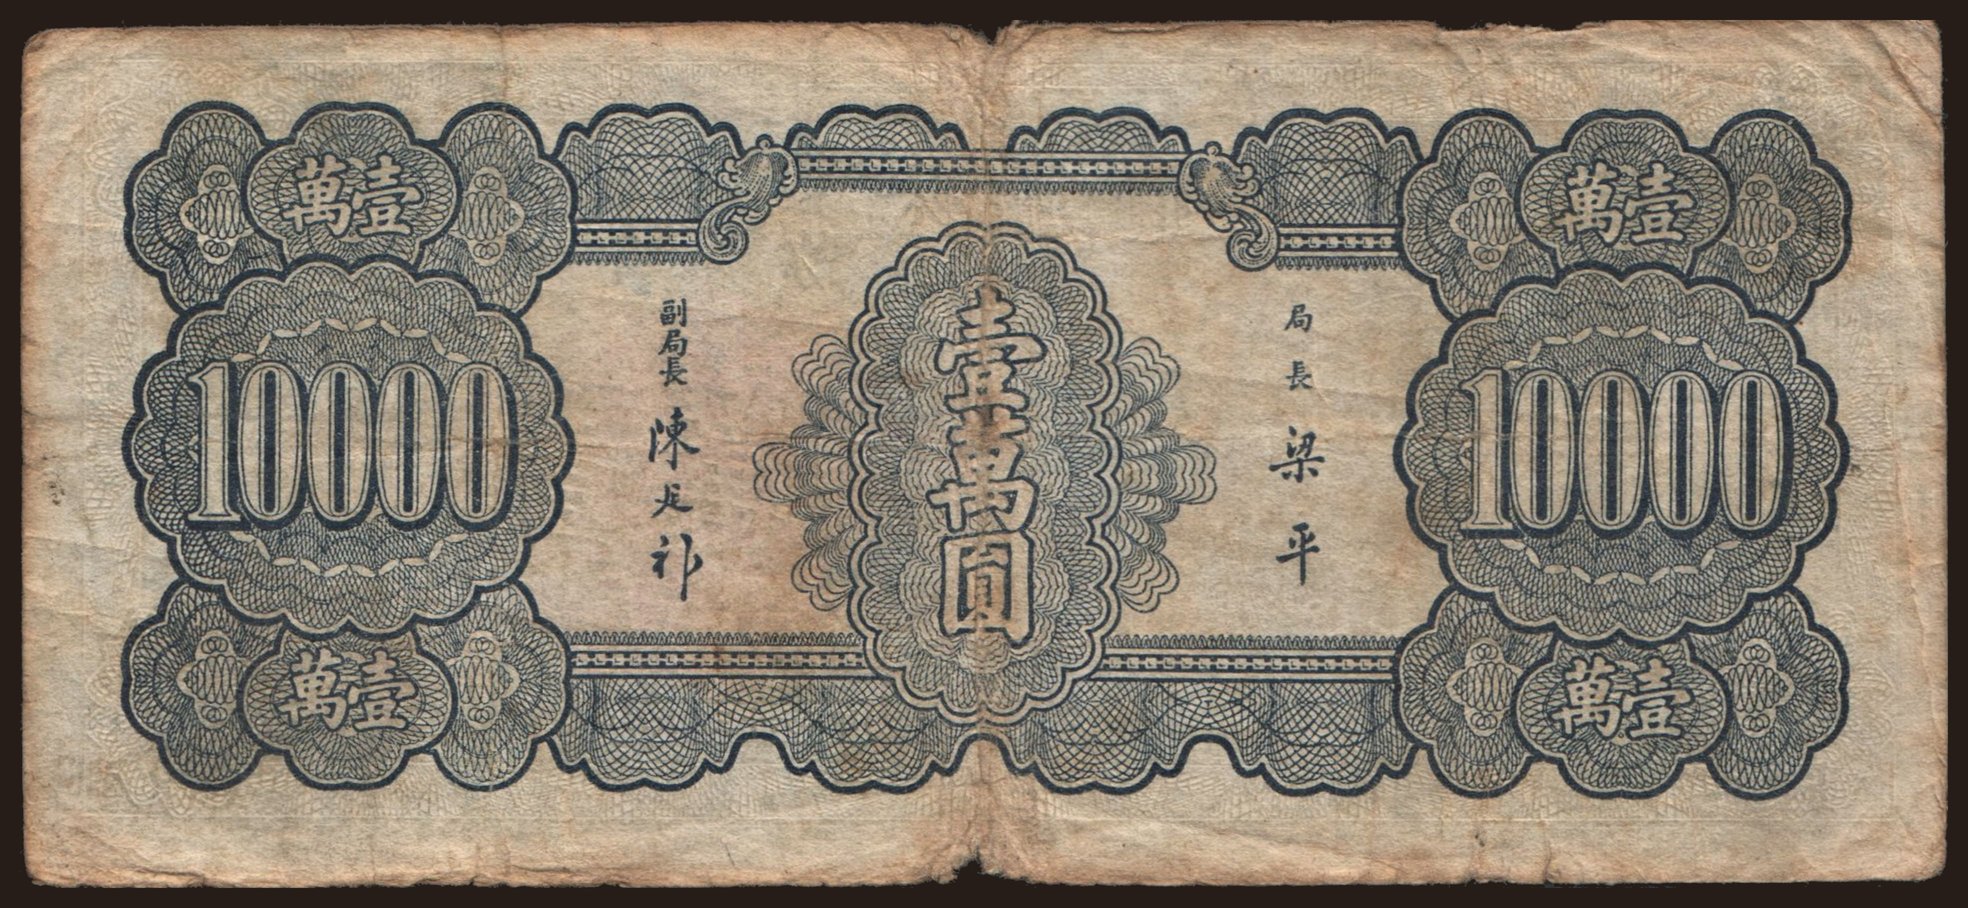 壹萬
壹萬
10000
10000
壹萬圓
局長 梁平
副局長 陳延祚
壹萬
壹萬